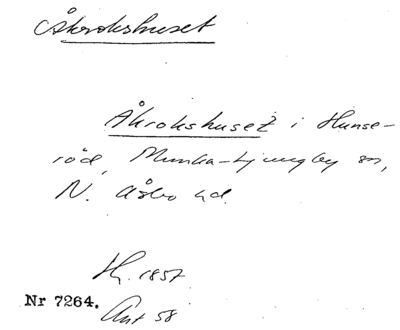 Åkrokshuset
Åkrokshuset i Hunse-
röd, Munka-Ljungby sn,
N. Åsbo hd.
Hf. 1857
Nr 7264.
Ant 58